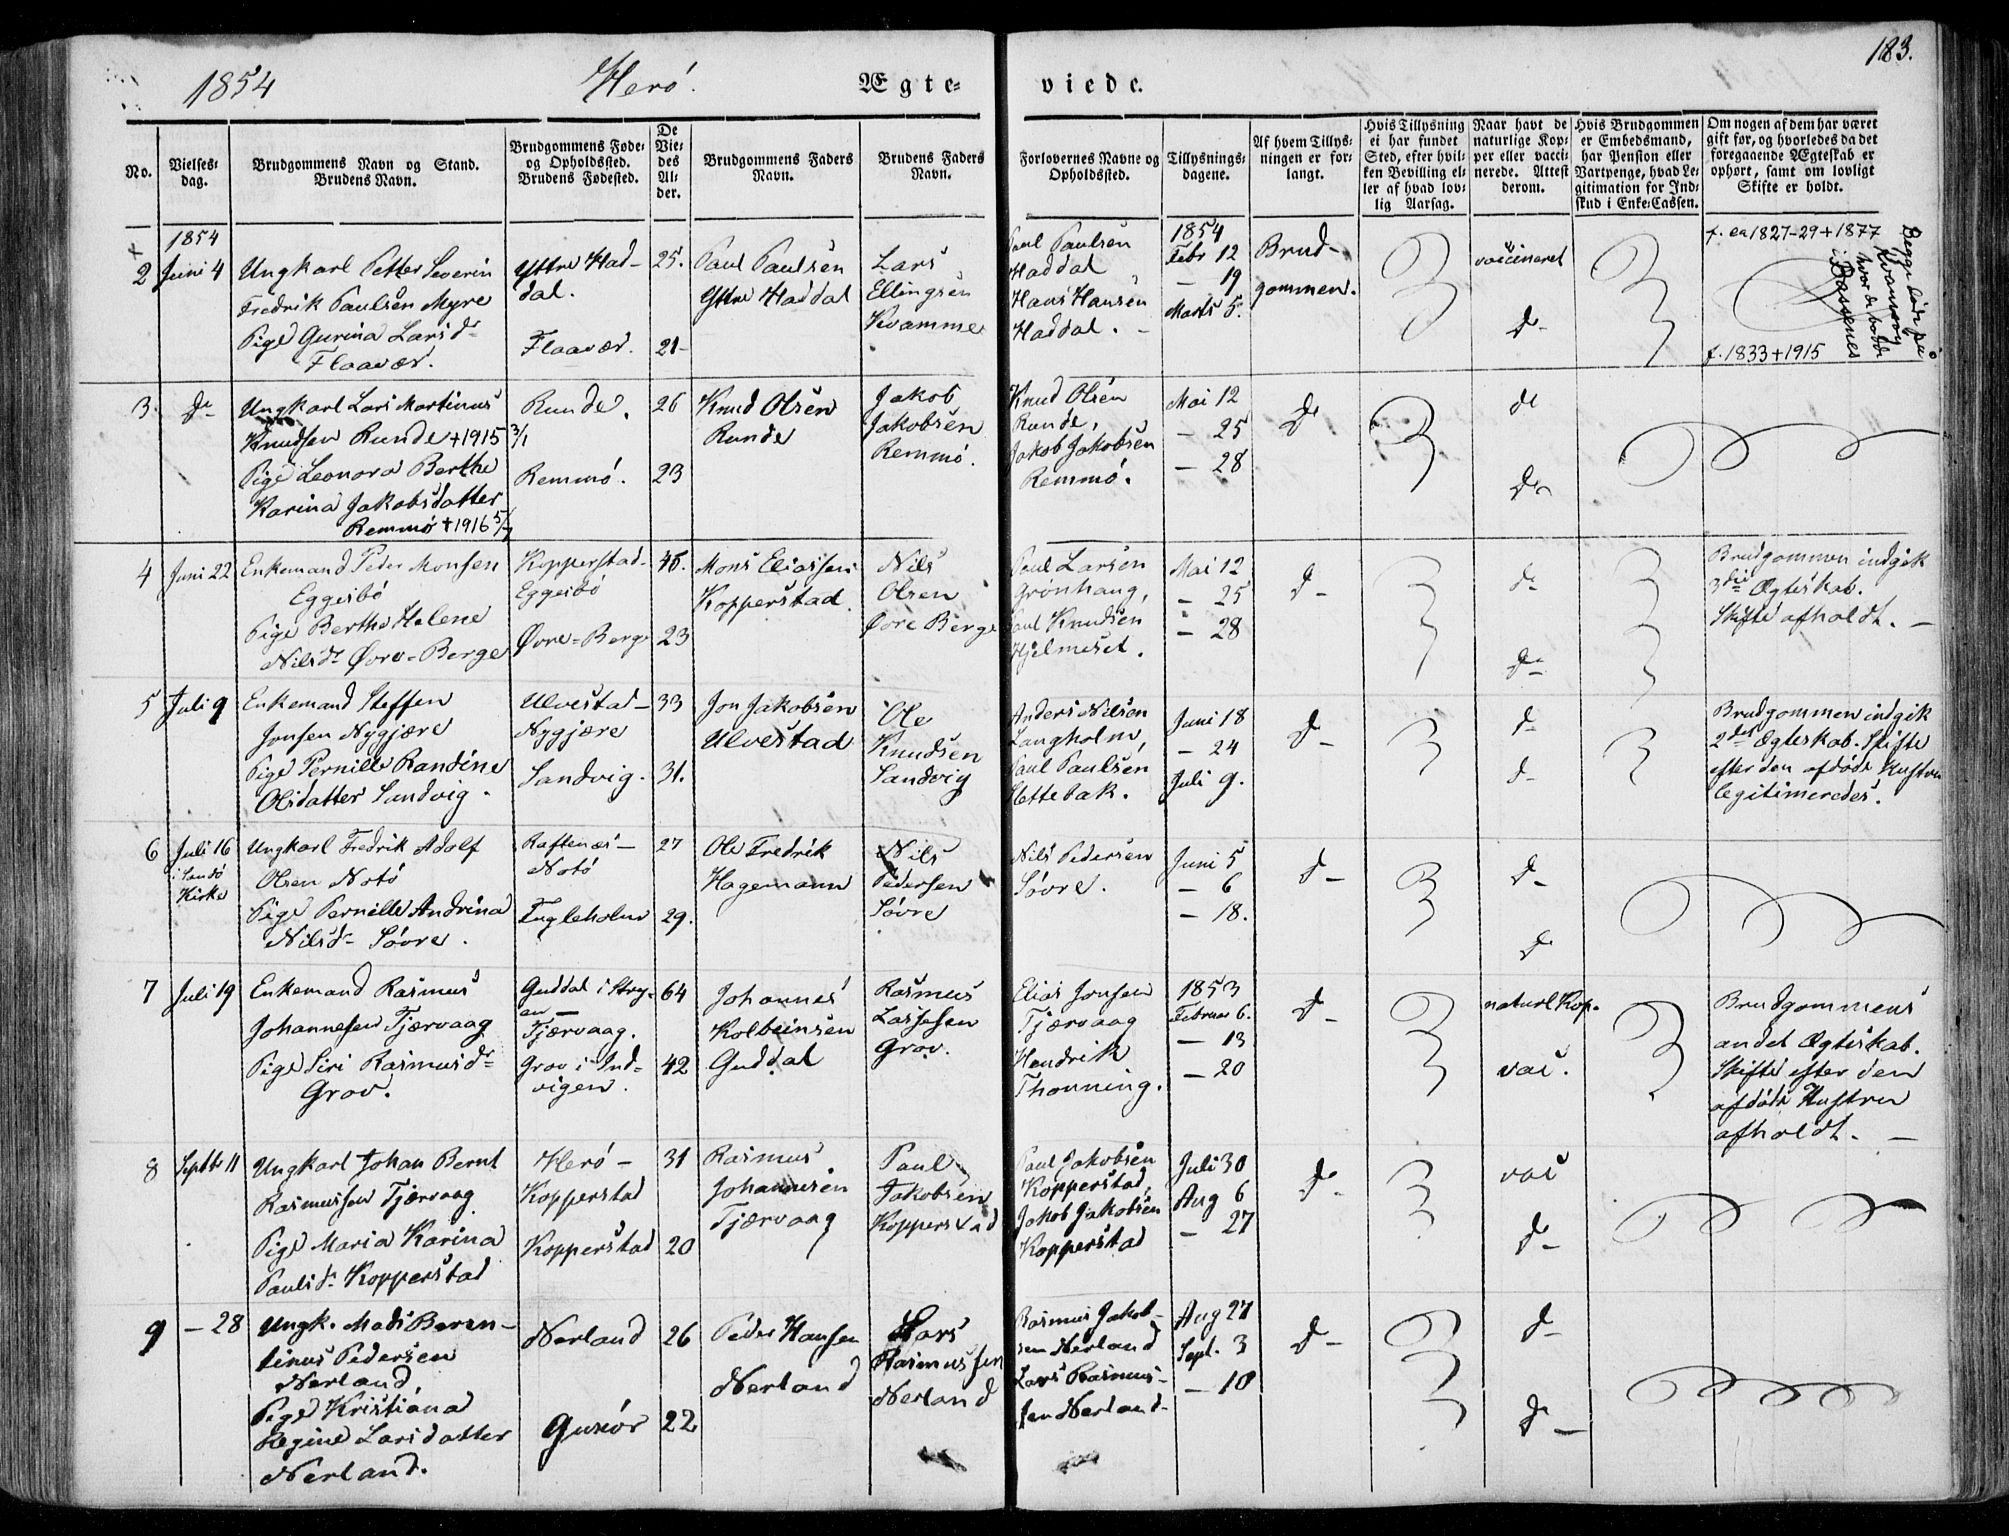 183.
1854 Herö. Ægte- viede.
No.
Vielses-
dag.
Brudgommens Navn og Stand.
Brudens Navn.
Brudgommens Føde-
og Opholdssted.
Brudens Fødested.
De
Vie-
des
Al-
der.
Brudgommens Faders
Navn.
Brudens Faders
Navn.
Forlovernes Navne og
Opholdssted.
Tillysnings-
dagene.
Af hvem Tillys-
ningen er for-
langt.
Hvis Tillysning
ei har fundet
Sted, efter hvil-
ken Bevilling el-
ler af hvad lov-
lig Aarsag.
Naar havt de
naturlige Kop-
per eller vacci-
nerede. Attest
derom.
Hvis Brudgommen
er Embedsmand,
har Pension eller
Vartpenge, hvad Le-
gitimation for Ind-
skud i Enke-Cassen.
Om nogen af dem har været
gift før, og hvorledes da det
foregaaende Ægteskab er
ophørt, samt om lovligt
Skifte er holdt.
1854
2 Juni 4
Ungkarl Petter Severin
Fredrik Paulsen Myre
Pige Gurina Larsd-
Flaavær.
Yttre Had-
dal.
Flaavær.
25.
21-
Paul Paulsen
Yttre Haddal
Lars
Ellingsen
Kvamme
Paul Paulsen
Haddal
Hans Hansen
Haddal. -
1854
Febr 12
- 19
Marts 5.
Brud-
gommen.
vaccineret
d-
f. ca 1827-29 + 1877
f. 1833 + 1915
Begge døde på
Kvamsøy
hvor de bodde
i Bassenes
3. d-
Ungkarl Lars Martinus
Knudsen Runde + 1915 3/1
Pige Leonora Berthe
Karina Jakobsdatter
Remmö + 1916 5/7
Runde.
Remmö.
26
23
Knud Olsen
Runde
Jakob
Jakobsen
Remmö.
Knud Olsen
Runde,
Jakob Jakobsen
Remmö.
Mai 12
- 25
- 28
d-
d-
d-
4 Juni 22
Enkemand Peder Monsen
Eggesbö
Pige Berthe Helene
Nilsd- Øvre-Berge
Kopperstad-
Eggesbö
Øvre-Berge
46.
23
Mons Eliassen
Kopperstad.
Nils
Olsen
Øvre Berge
Paul Larsen
Grönhaug,
Paul Knudsen
Hjelmeset.
Mai 12
- 25
- 28
d-
d-
d-
Brudgommen indgik
3die Ægteskab.
Skifte afholdt. -
5 Juli 9
Enkemand Steffen
Jonsen Nygjære
Pige Pernille Randine
Olsdatter Sandvig.
Ulvestad-
Nygjære
Sandvig.
33
31.
Jon Jakobsen
Ulvestad
Ole
Knudsen
Sandvig
Anders Nilsen
Langholm,
Paul Paulsen
Slettebak.
Juni 18
- 24
Juli 9.
d-
d-
d-
Brudgommen indgik
2det Ægteskab. Skifte
efter den afdöde Hustru
legitimeredes.
6 Juli 16
i Sandö
Kirke
Ungkarl Fredrik Adolf
Olsen Notö
Pige Pernille Andrina
Nilsd- Søvre.
Raftenæs-
Notö
Fugleholm
27
29.
Ole Fredrik
Hagemann
Nils
Pedersen
Søvre
Nils Pedersen
Søvre.
Juni 5
- 6
- 18.
d-
d-
d-
7 Juli 19
Enkemand Rasmus
Johannesen Tjærvaag
Pige Siri Rasmusd-
Grov.
Guddal i Stry-
en-
Tjærvaag.
Grov i Ind-
vigen.
64
42
Johannes
Kolbeinsen
Guddal
Rasmus
Lassesen
Grov.
Elias Jonsen
Tjærvaag
Hendrik
Thonning.
1853
Februar 6.
- 13
- 20
d-
naturl Kop.
vac.
Brudgommens
andet Ægteskab.
Skifte efter den
afdöde Hustru
afholdt. -
8 Septbr 11
Ungkarl Johan Bernt
Rasmussen Tjærvaag
Pige Maria Karina
Paulsd- Kopperstad
Herö-
Kopperstad
Kopperstad
31
20
Rasmus
Johannesen
Tjærvaag
Paul
Jakobsen
Kopperstad
Paul Jakobsen
Kopperstad,
Jakob Jakobsen
Kopperstad
Juli 30
Aug 6
- 27
d-
vac
d-
9 - 28
Ungk. Mads Beren-
tinus Pedersen
Nerland
Pige Kristiana
Regine Larsdatter
Nerland.
Nerland
Gursör
26
22
Peder Hansen
Nerland
Lars
Rasmussen
Nerland
Rasmus Jakob-
sen Nerland
Lars Rasmus-
sen Nerland-
Aug 27
Sept. 3
- 10
d-
d-
d-